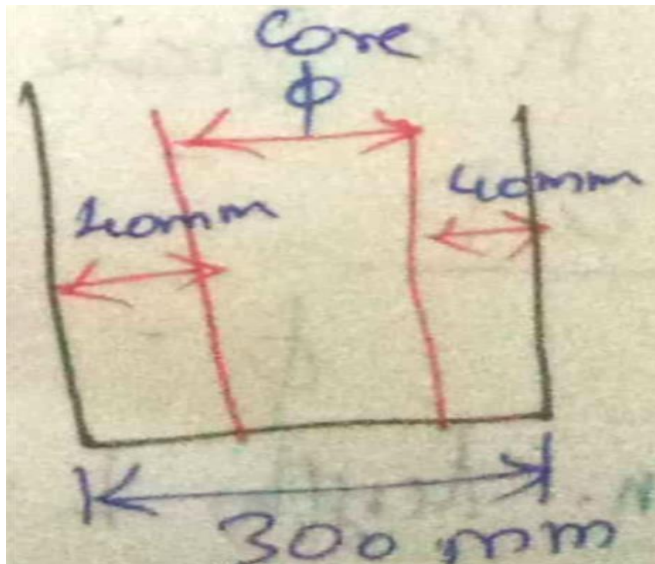 Core
φ
40mm
40mm
300 mm